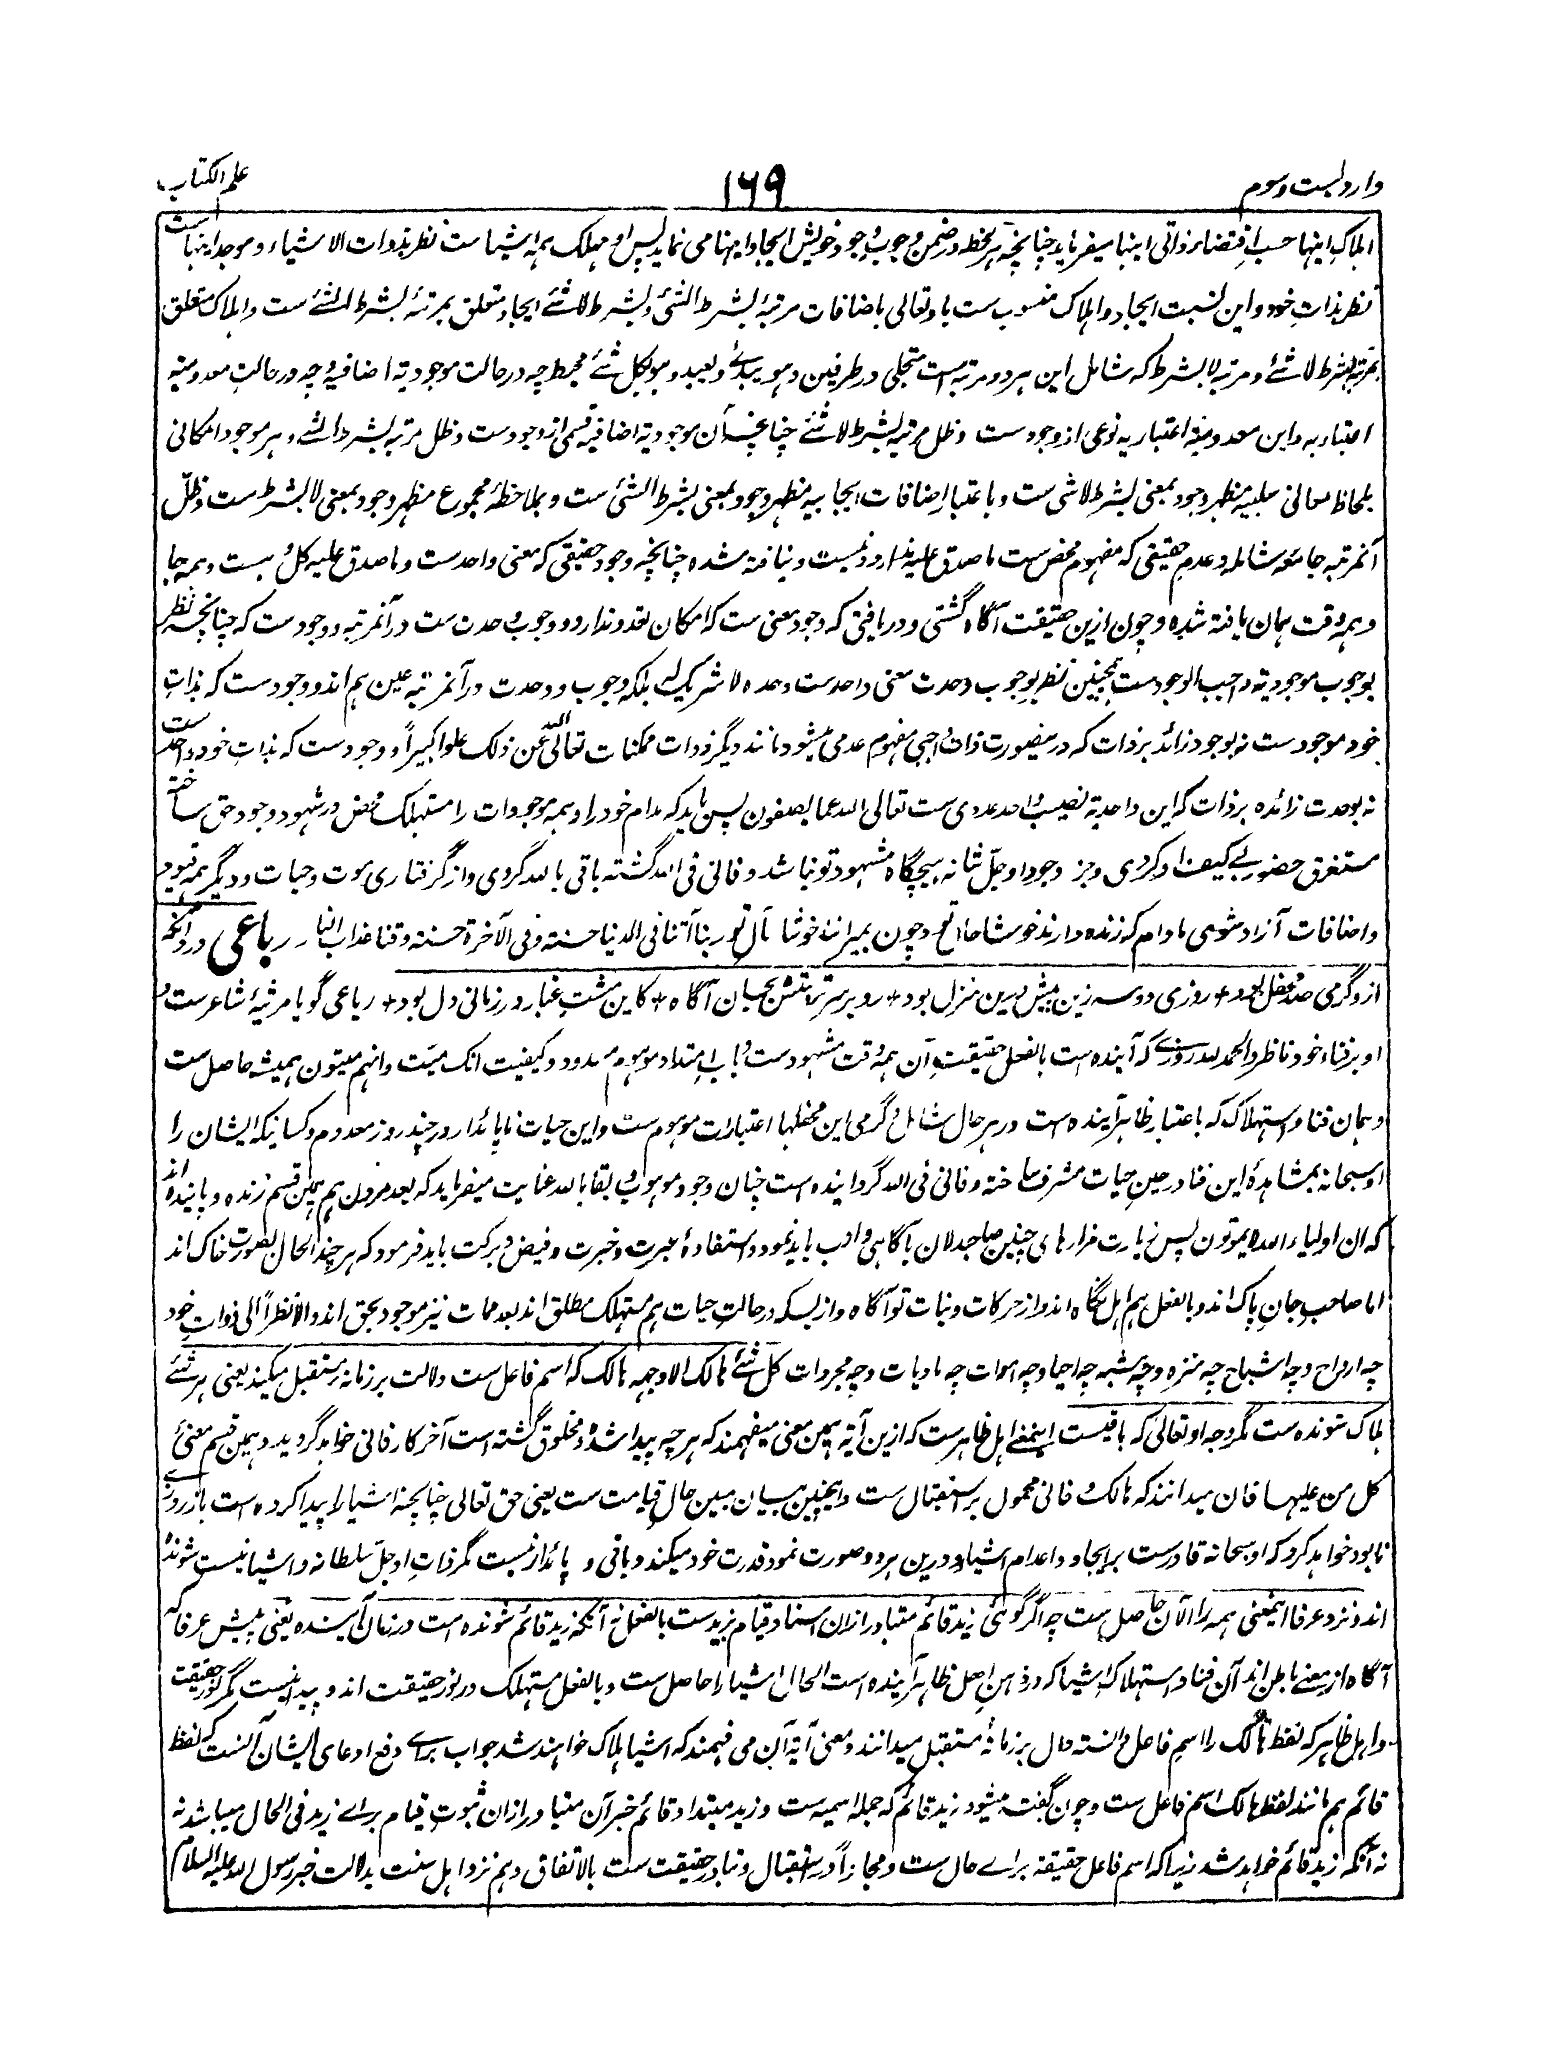 وارد بست و سوم ۱۶۹ علم الکتاب
اہلاک اینہا حسب اقتضاء ذاتی اینہا میفرماید چنانچہ ہر لحظہ در ضمن وجوب وجود خویش ایجاد اینہا می نماید پس او مہلک ہمہ اشیاست نظر بذوات الاشیاء و موجد اینہاست
نظر بذات خود و این نسبت ایجاد و اہلاک منسوب ست باو تعالی باضافات مرتبۂ بشرط الشئی و بشرط لاشئے ایجاد متعلق بمرتبۂ بشرط الشئے ست و اہلاک متعلق
بمرتبۂ بشرط لاشئے و مرتبہ لا بشرط کہ شامل این ہر دو مرتبہ است متجلی در طرفین و ہو یبدئ و یعید و ہو بکل شئے محیط چہ در حالت موجودیۃ اضافیہ و چہ در حالت معدومیتہ
اعتباریہ و این معدومیتہ اعتباریہ نوعی از وجود ست و ظل مرتبہ بشرط لاشئے چنانچہ آن موجودیتہ اضافیہ قسمی از وجود ست و ظل مرتبہ بشرط الشئے و ہر موجود امکانی
بلحاظ معانی سلبیہ مظہر وجود بمعنی بشرط لاشی ست و باعتبار اضافات ایجابیہ مظہر وجود بمعنی بشرط الشئی ست و بملاحظۂ مجموع مظہر وجود بمعنی لا بشرط ست و ظلّ
آنمرتبہ جامعہ شاملہ و عدم حقیقی کہ مفہوم محض ست ما صدق علیہ ندارد و نیست و نیافتہ شدہ چنانچہ وجود حقیقی کہ معنی واحدست و ما صدق علیہ کلّ ہست و ہمہ جا
و ہمہ وقت ہمان یافتہ شدہ و چون ازین حقیقت آگاہ گشتی و دریافتی کہ وجود معنی ست کہ امکان تعدد ندارد و وجوب وحدت ست در آنمرتبہ و وجودست کہ چنانچہ نظر
بوجوب موجودیتہ واجب الوجودست ہمچنین نظر بوجوب وحدت معنی واحدست وحدہ لا شریک لہ بلکہ وجوب و وحدت در آنمرتبہ عین ہم اند و وجودست کہ بذات
خود موجودست نہ بوجود زائد بر ذات کہ درینصورت ذات واجبی مفہوم عدمی میشود مانند دیگر ذوات ممکنات تعالی اللہ عن ذلک علوا کبیراً و وجودست کہ بذات خود واحدست
نہ بوحدت زائدہ بر ذات کہ این واحدیۃ نصیب واحد عددی ست تعالی اللہ عما یصفون پس باید کہ مدام خود را و ہمہ موجودات را مستہلک محض در شہود وجود حق ساختہ
مستغرق حضور بے کیف او گردی و جز وجود او جلّ شانہ ہیچگاہ مشہود تو نباشد و فانی فی اللہ گشتہ باقی باللہ گردی و از گرفتاری موت و حیات و دیگر ہمہ قیود
و اضافات آزاد شوی مادام کہ زندہ دارند خوشا حال تو و چون بمیرانند خوشا مآل تو ربنا آتنا فی الدنیا حسنۃ و فی الآخرۃ حسنۃ و قنا عذاب النار رباعی درد آنکہ
ازو گرمی صد محفل بود + روزی دو سہ زین پیش درین منزل بود + رو بر سر تربتش بحسان آگاہ + کاین مشت غبار در زمانی دل بود + رباعی گویا مرثیۂ شاعرست و
او بر فناء خود ناظر و الحمد للہ روزی کہ آیندہ است بالفعل حقیقت آن ہمہ وقت مشہودست و باب امتداد موہوم مسدود و کیفیت انک میّت و انہم میتون ہمیشہ حاصل ست
و ہمان فنا و استہلاک کہ باعتبار ظاہر آیندہ است در ہر حال شامل و گرمی این محفلہا اعتبارات موہوم ست و این حیات ناپائدار در چند روز معدوم و کسانیکہ ایشان را
او سبحانہ بمشاہدۂ این فنا در حین حیات مشرف ساختہ و فانی فی اللہ گردانیدہ است چنان وجود موہوب و بقا باللہ عنایت میفرماید کہ بعد مردن ہم بہمین قسم زندہ و پایندہ اند
کہ ان اولیاء اللہ لایموتون پس زیارت مزارہای چنین صاحبدلان باگاہی و ادب باید نمود و استفادۂ عبرت و خبرت و فیض و برکت باید فرمود کہ ہر چند الحال بصورت خاک اند
اما صاحب جان پاک اند و بالفعل ہم اہل نگاہ اند و از حرکات و نیات تو آگاہ و ازبسکہ در حالت حیات ہم مستہلک مطلق اند بعد ممات نیز موجود بحق اند والا نظراً الی ذوات خود
چہ ارواح و چہ اشباح چہ منزہ و چہ مشبہ چہ احیا و چہ اموات چہ مادیات و چہ مجردات کل شئے ہالک الا وجہہ ہالک کہ اسم فاعل ست دلالت بر زمانہ مستقبل میکند یعنی ہر شئے
ہلاک شوندہ ست مگر وجہ او تعالیٰ کہ باقیست اینمعنے اہل ظاہرست کہ ازین آیہ ہمین معنی میفہمند کہ ہر چہ پیدا شدہ و مخلوق گشتہ است آخر کار فانی خواہد گردید و ہمین قسم معنیٔ
کل من علیہا فان میدانند کہ ہالک و فانی محمول بر استقبال ست و اینچنین بیان مبین حال قیامت ست یعنی حق تعالی چنانچہ اشیا را پیدا کردہ است باز روزے
نابود خواہد کرد کہ او سبحانہ قادرست بر ایجاد و اعدام اشیا و درین ہر دو صورت نمود قدرت خود میکند و باقی و پائدار نیست مگر ذات او جلّ سلطانہ و اشیا نیست شوندہ
اند و نزد عرفا اینمعنی ہمہ را الآن حاصل ست چہ اگر گوئی زید قائم متبادر ازان اسناد قیام بزیدست بالفعل نہ آنکہ زید قائم شوندہ است در زمان آیندہ یعنی پیش عرفا کہ
آگاہ از معنے باطن اند آن فنا و استہلاک اشیا کہ در ذہن اہل ظاہر آیندہ است الحال اشیا را حاصل ست و بالفعل مستہلک در نور حقیقت اند و پیدا نیست مگر نور حقیقت
و اہل ظاہر کہ لفظ ہالک را اسم فاعل دانستہ دال بر زمانۂ مستقبل میدانند و معنی آیہ آن می فہمند کہ اشیا ہلاک خواہند شد جواب برائے دفع ادعای ایشان آنست کہ لفظ
قائم ہم مانند لفظ ہالک اسم فاعل ست و چون گفتہ میشود زید قائم کہ جملہ اسمیہ ست و زید مبتدا و قائم خبر آن متبادر ازان ثبوت قیام برائے زید فی الحال میباشد نہ
نہ آنکہ زید قائم خواہد شد زیرا کہ اسم فاعل حقیقۃ برائے حال ست و مجازاً در استقبال و تبادر حقیقت ست بالاتفاق و ہم نزد اہل سنت بدلالت خبر رسول اللہ علیہ السلام